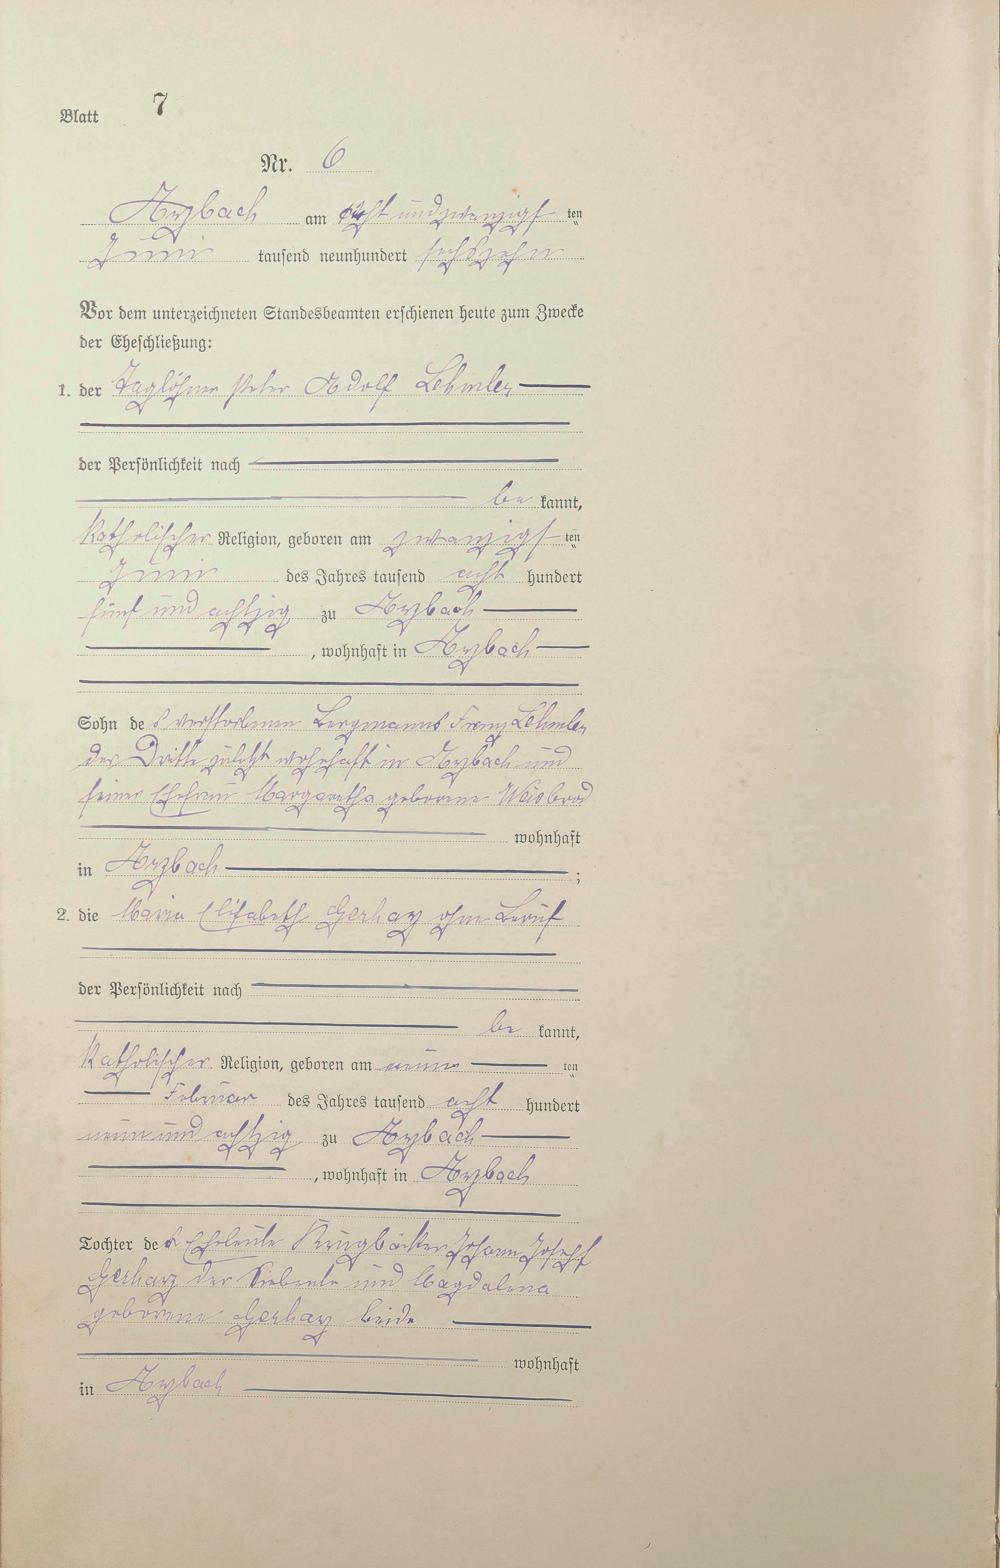 Blatt 7
Nr. 6
Arzbach am acht und zwanzigsten
Juni tausend neunhundert sechszehn
Vor dem unterzeichneten Standesbeamten erschienen heute zum Zwecke
der Eheschließung:
1. der Taglöhner Peter Adolf Lehmler
der Persönlichkeit nach
be kannt,
katholischer Religion, geboren am zwanzigsten
Juni des Jahres tausend acht hundert
fünf und achtzig zu Arzbach
, wohnhaft in Arzbach
Sohn des verstorbenen Bergmanns Franz Lehmler
der Dritte zuletzt wohnhaft in Arzbach und
seiner Ehefrau Margaretha geborene Weisbrod
wohnhaft
in Arzbach ;
2. die Maria Elisabeth Gerharz ohne Beruf
der Persönlichkeit nach
be kannt,
katholischer Religion, geboren am neunten
Februar des Jahres tausend acht hundert
neun und achtzig zu Arzbach
, wohnhaft in Arzbach
Tochter der Eheleute Krugbäcker Johann Joseph
Gerharz der Siebente und Magdalena
geborene Gerharz beide
wohnhaft
in Arzbach